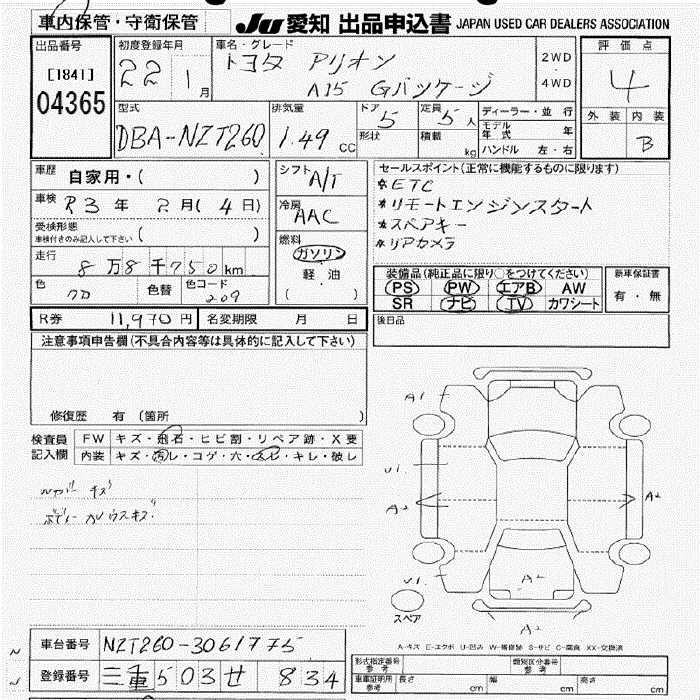 車内保管・守衛保管
JU 愛知 出品申込書 JAPAN USED CAR DEALERS ASSOCIATION
出品番号
[1841]
04365
初度登録年月
22 1月
車名・グレード
トヨタ アリオン
A15 Gパッケージ
2WD
・
4WD
評価点
4
外装 内装
B
型式
DBA-NZT260
排気量
1.49 CC
ドア 5
形状
定員 5人
積載 kg
ディーラー・並行
モデル年式 年
ハンドル 左・右
車歴 自家用・( )
車検 R3年 2月(4日)
受検形態
車検付きのみ記入して下さい ( )
走行
8万8千750km
色 クロ 色替 色コード 209
シフト A/T
冷房 AAC
燃料
ガソリン
軽・油
( )
セールスポイント(正常に機能するものに限ります)
*ETC
*リモートエンジンスタート
*スペアキー
*リアカメラ
装備品(純正品に限り○をつけてください)
PS PW エアB AW
SR ナビ TV カワシート
新車保証書
有・無
R券 11,970円 名変期限 月 日
後日品
注意事項申告欄(不具合内容等は具体的に記入して下さい)
修復歴 有(箇所 )
検査員記入欄
FW キズ・飛石・ヒビ割・リペア跡・X要
内装 キズ・汚レ・コゲ・穴・スレ・キレ・破レ
キズ
A1
U1
A2
A2
U1
A2
スペア
A2
A-キズ E-エクボ U-凹み W-補修跡 S-サビ C-腐食 XX-交換済
車台番号 NZT260-3061775
登録番号 三重503せ 834
形式指定番号 参考
類別区分番号 参考
車庫証明用 参考 長さ cm 幅 cm 高さ cm